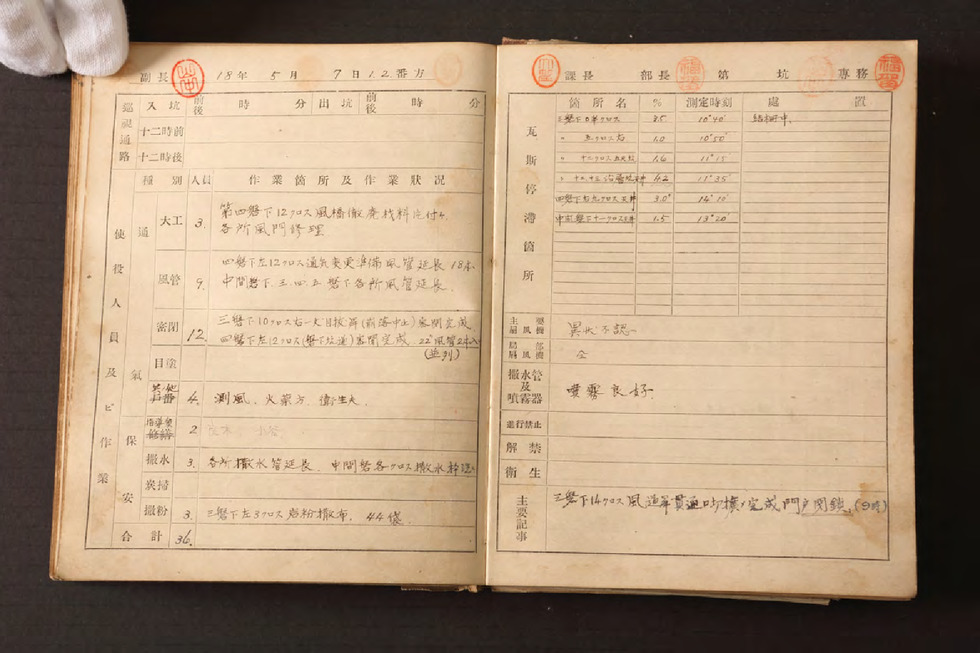 副長 18年 5月 7日 1.2.番方
巡視通路 入坑 前後 時 分 出坑 前後 時 分
十二時前
十二時後
使役人員及ビ作業
種別 人員 作業箇所及作業狀況
通氣
大工 3. 第四盤下12クロス風橋撤廃材料片付ケ
各所風門修理
風管 9. 四盤下左12クロス通気変更準備風管延長 18本
中間盤下、三、四、五盤下各所風管延長
密閉 12. 三盤下10クロス右一大目抜昇(前落中止)密閉完成
四盤下左12クロス(盤下坑道)密閉完成 22"風管2本入
(並列)
目塗
4. 測風、火薬方、衛生夫
保安
2
撒水 3. 各所撒水管延長、中間盤各クロス撒水
炭掃
撒粉 3. 三盤下左3クロス岩粉撒布、44袋
合計 36.
課長 部長 第 坑 專務
瓦斯停滯箇所
箇所名 % 測定時刻 處置
三盤下0半クロス 3.5 10°40' 結柵中
〃 五クロス右 1.0 10°50'
〃 1.6 11°15'
〃 4.2 11°35'
四盤下右九クロス天井 3.0 14°10'
中間盤下十一クロス天井 1.5 13°20'
主要扇風機 異状不認
局部扇風機 仝
撒水管及噴霧器 噴霧良好
進行禁止
解禁
衛生
主要記事 三盤下14クロス風道昇貫通口拡大完成門戸閉鎖 (9時)